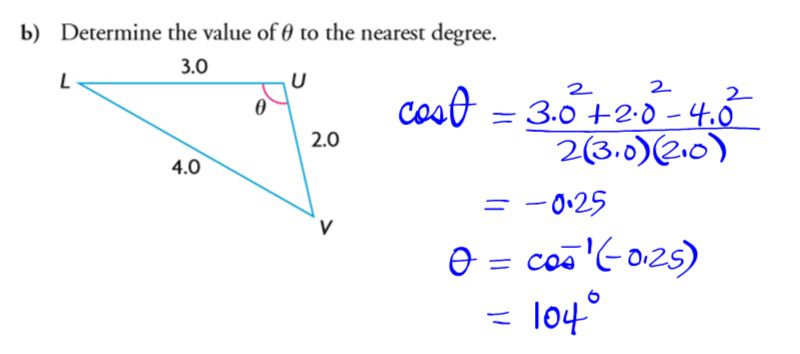 b) Determine the value of θ to the nearest degree.
L 3.0 U
θ
2.0
4.0
V
cosθ = 3.0² + 2.0² - 4.0²
2(3.0)(2.0)
= -0.25
θ = cos⁻¹(-0.25)
= 104°